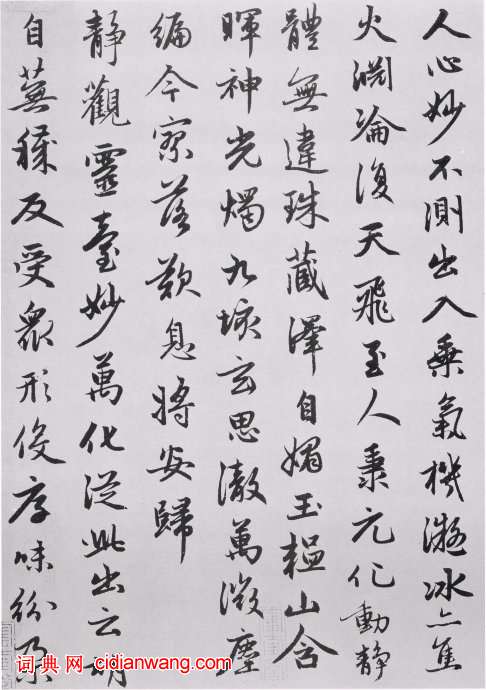 人心妙不測出入乗氣機凝冰亦焦
火淵淪復天飛至人秉元化動静
體無違珠藏澤自媚玉韞山含
暉神光燭九垓玄思澈萬微塵
編今寥落歎息將安歸
静觀靈臺妙萬化従此出云胡
自蕪穢反受衆形役厚味紛朶
词典网 cidianwang.com